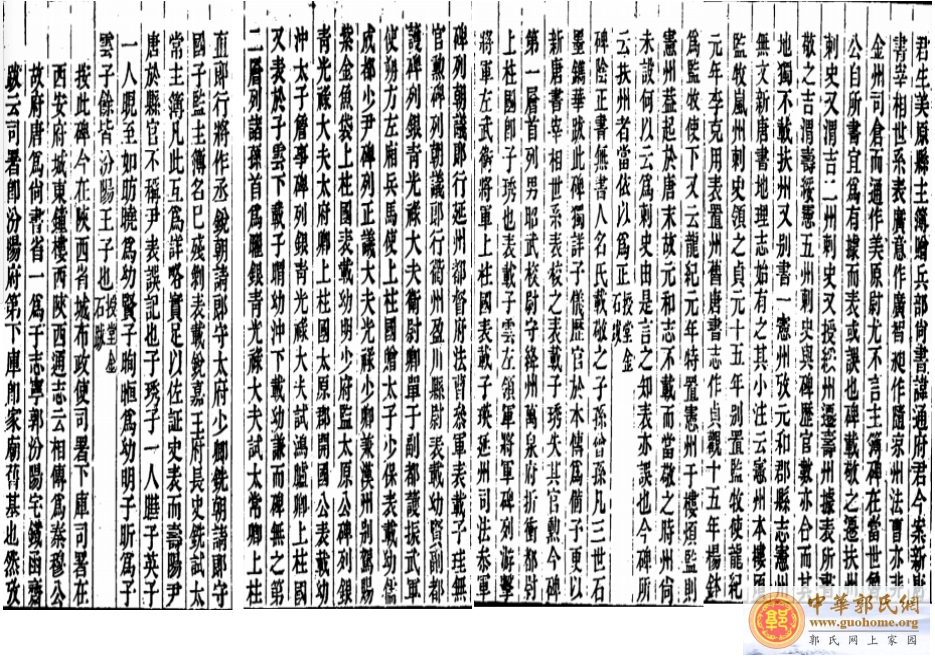 君生美原縣主簿贈兵部尚書諱通府君今案新唐
書宰相世系表廣意作廣智昶作隨涼州法曹亦非
金州司倉而通作美原尉尤不言主簿碑在當世魯
公自所書宜爲有據而表或誤也碑載敬之遷扶州
刺史又謂吉二州刺史又授綏州遷壽州據表所書
敬之吉渭壽綏憲五州刺史與碑歷官數亦合而其
地獨不載扶州又別書一憲州攷元和郡縣志憲州
無文新唐書地理志始有之其小注云憲州本樓煩
監牧嵐州刺史領之貞元十五年別置監牧使龍紀
元年李克用表置州舊唐書志作貞觀十五年楊鉢
爲監牧使下又云龍紀元年特置憲州于樓煩監則
憲州葢起於唐末故元和志不載而當敬之時州尙
未設何以云爲刺史由是言之知表亦誤也今碑所
云扶州者當依以爲正 授堂金石跋
碑陰正書無書人名氏載敬之子孫曾孫凡三世石
墨鐫華跋此碑獨詳子儀歷官於本傳爲備予更以
新唐書宰相世系表校之表載子琇失其官勲今碑
第一層首列男昭武校尉守絳州萬泉府折衝都尉
上柱國卽子琇也表載子雲左領軍將軍碑列游擊
將軍左武衛將軍上柱國表載子瑛延州司法參軍
碑列朝議郎行延州都督府法曹叅軍表載子珪無
官勲碑列朝議郎行衢州盈川縣尉表載幼賢副都
護碑列銀青光祿大夫衛尉卿單于副都護振武軍
使朔方左廂兵馬使上柱國贈太子少保表載幼儒
成都少尹碑列正議大夫光祿少卿兼漢州別駕賜
紫金魚袋上柱國表載幼明少府監太原公碑列銀
青光祿大夫太府卿上柱國太原郡開國公表載幼
沖太子詹事碑列銀青光祿大夫試鴻臚卿上柱國
又表於子雲下載子𣈶幼沖下載幼謙而碑無之第
二層列諸孫首爲曜銀青光祿大夫試太常卿上柱
直郎行將作丞銳朝請郎守太府少卿銑朝請郎守
國子監主簿名已殘剝表載銳嘉王府長史銑試太
常主簿凡此互爲詳略實足以佐証史表而壽陽尹
唐於縣官不稱尹表誤記也子琇子一人𦙶子英子
一人晛至如昉曉爲幼賢子昫𣆀爲幼明子昕爲子
雲子餘皆汾陽王子也 授堂金石跋
我按此碑今在陝西省城布政使司署下庫司署在
西安府城東鐘樓西陝西通志云相傳爲秦穆公
故府唐爲尙書省一爲于志寧郭汾陽宅鐵函齋
跋云司署卽汾陽府第下庫卽家廟舊基也然攷
中華郭氏網
www.guohome.org
郭氏网上家园